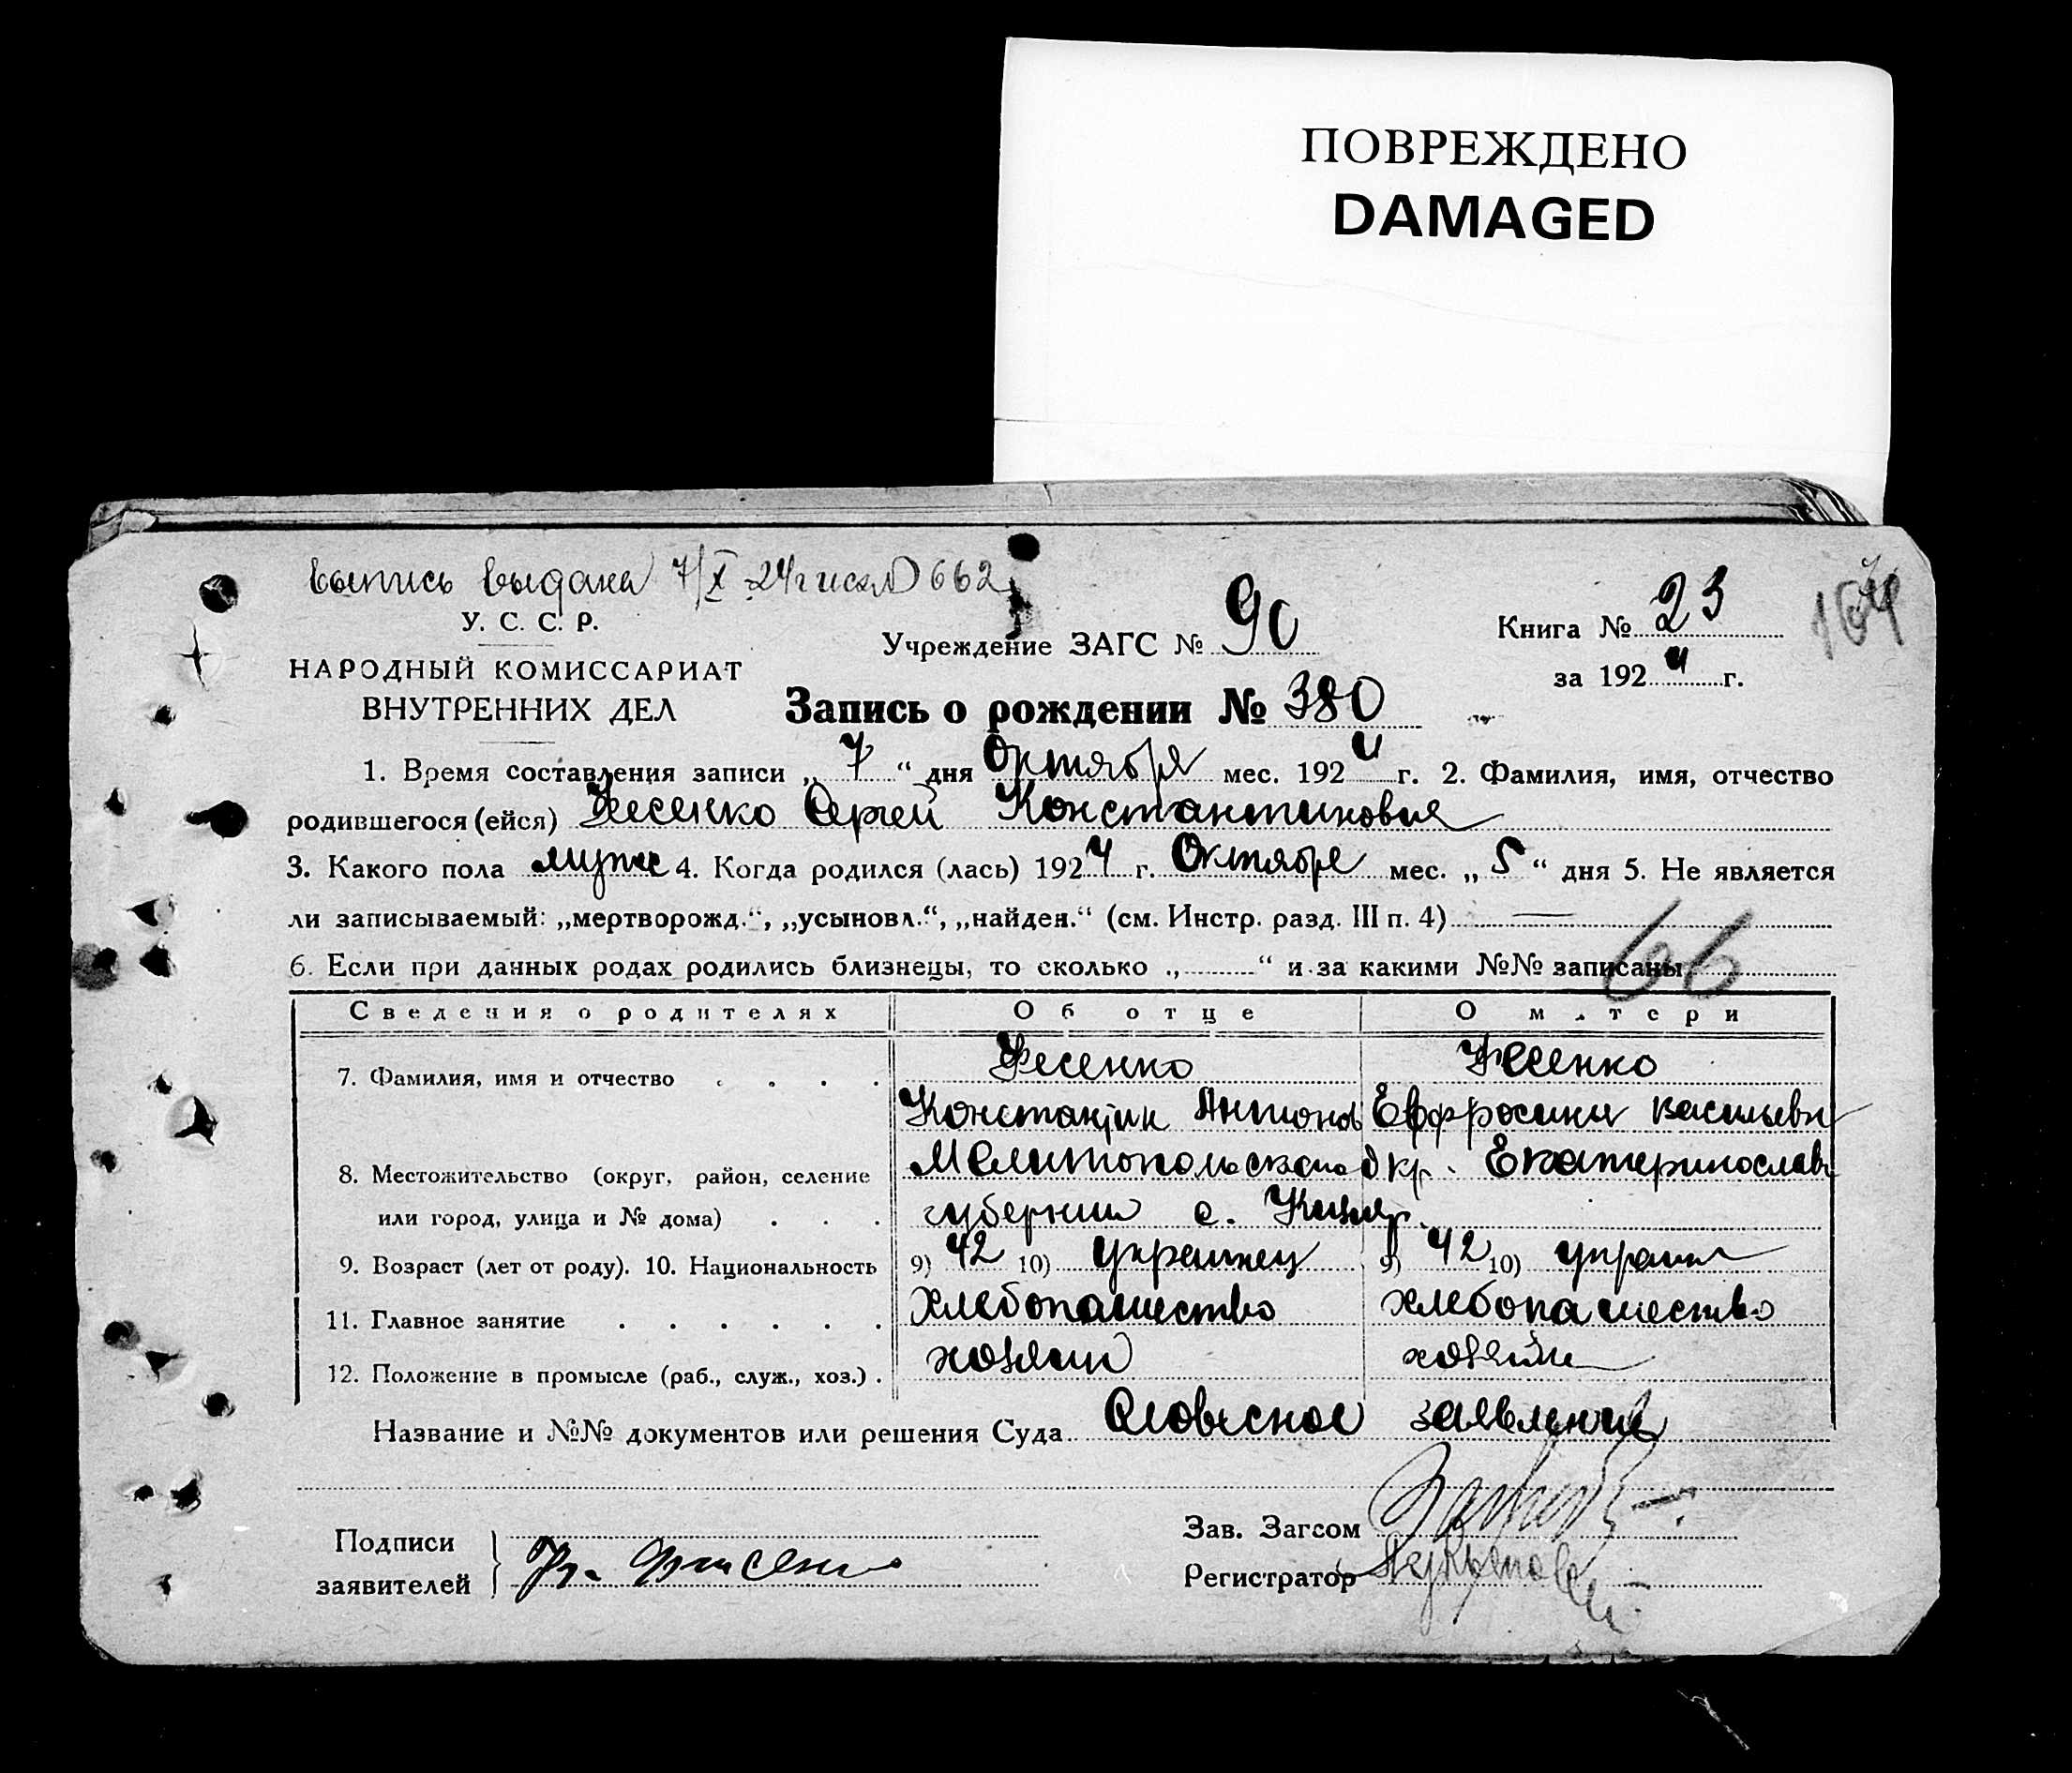 ПОВРЕЖДЕНО
DAMAGED
выпись выдана 7/X 24 г 662
У. С. С. Р.
НАРОДНЫЙ КОМИССАРИАТ
ВНУТРЕННИХ ДЕЛ
Учреждение ЗАГС № 90
Книга № 23
за 1924 г.
164
Запись о рождении № 380
1. Время составления записи „ 7 “ дня Октября мес. 1924 г. 2. Фамилия, имя, отчество
родившегося (ейся) Фесенко Сергей Константинович
3. Какого пола муже 4. Когда родился (лась) 1924 г. Октября мес. „ 5 “ дня 5. Не является
ли записываемый: „мертворожд.“, „усыновл.“, „найден.“ (см. Инстр. разд. III п. 4) —
6. Если при данных родах родились близнецы, то сколько „ “ и за какими №№ записаны
66
Сведения о родителях Об отце О матери
7. Фамилия, имя и отчество Фесенко Фесенко
Константин Антонов Ефросини Васильевн
8. Местожительство (округ, район, селение Мелитопольского окр. Екатеринославс
или город, улица и № дома) губернии с.
9. Возраст (лет от роду). 10. Национальность 9) 42 10) украинец 9) 42 10) украин
11. Главное занятие хлебопашество хлебопашество
12. Положение в промысле (раб., служ., хоз.) хозяин хозяйн
Название и №№ документов или решения Суда Словесное заявление
Подписи
заявителей
Зав. Загсом
Регистратор